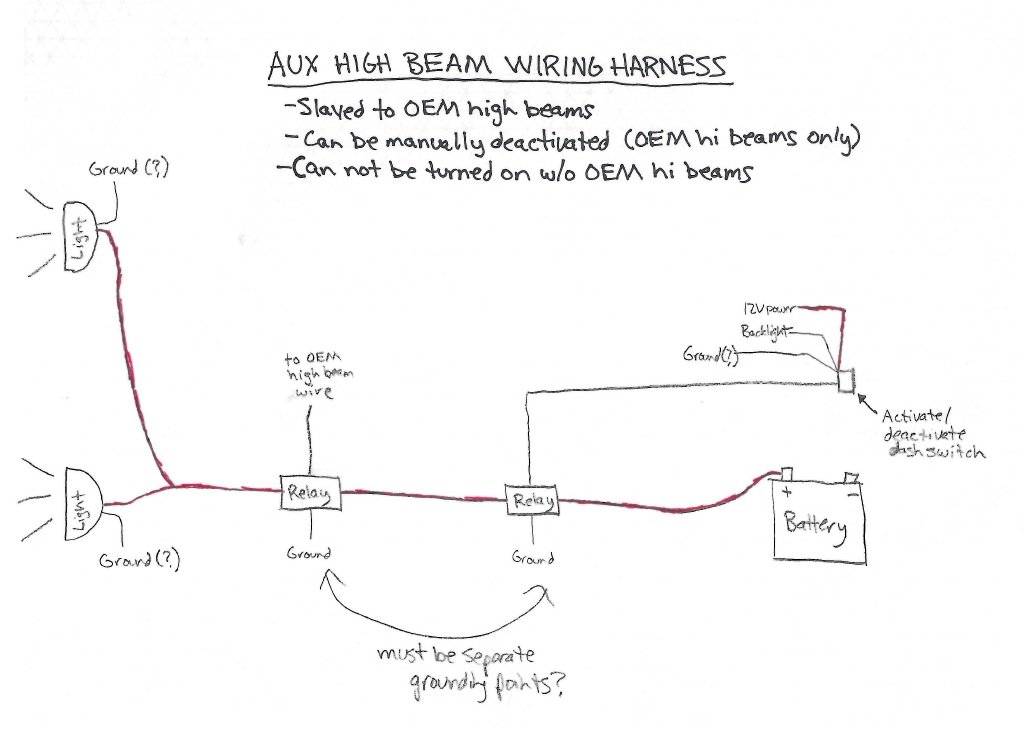 AUX HIGH BEAM WIRING HARNESS
-Slaved to OEM high beams
-Can be manually deactivated (OEM hi beams only)
-Can not be turned on w/o OEM hi beams
Ground (?)
Light
12V power
Backlight
Ground(?)
to OEM
high beam
wire
Activate/
deactivate
dash switch
Relay
Relay
+
-
Battery
Light
Ground(?)
Ground
Ground
must be separate
grounding points?